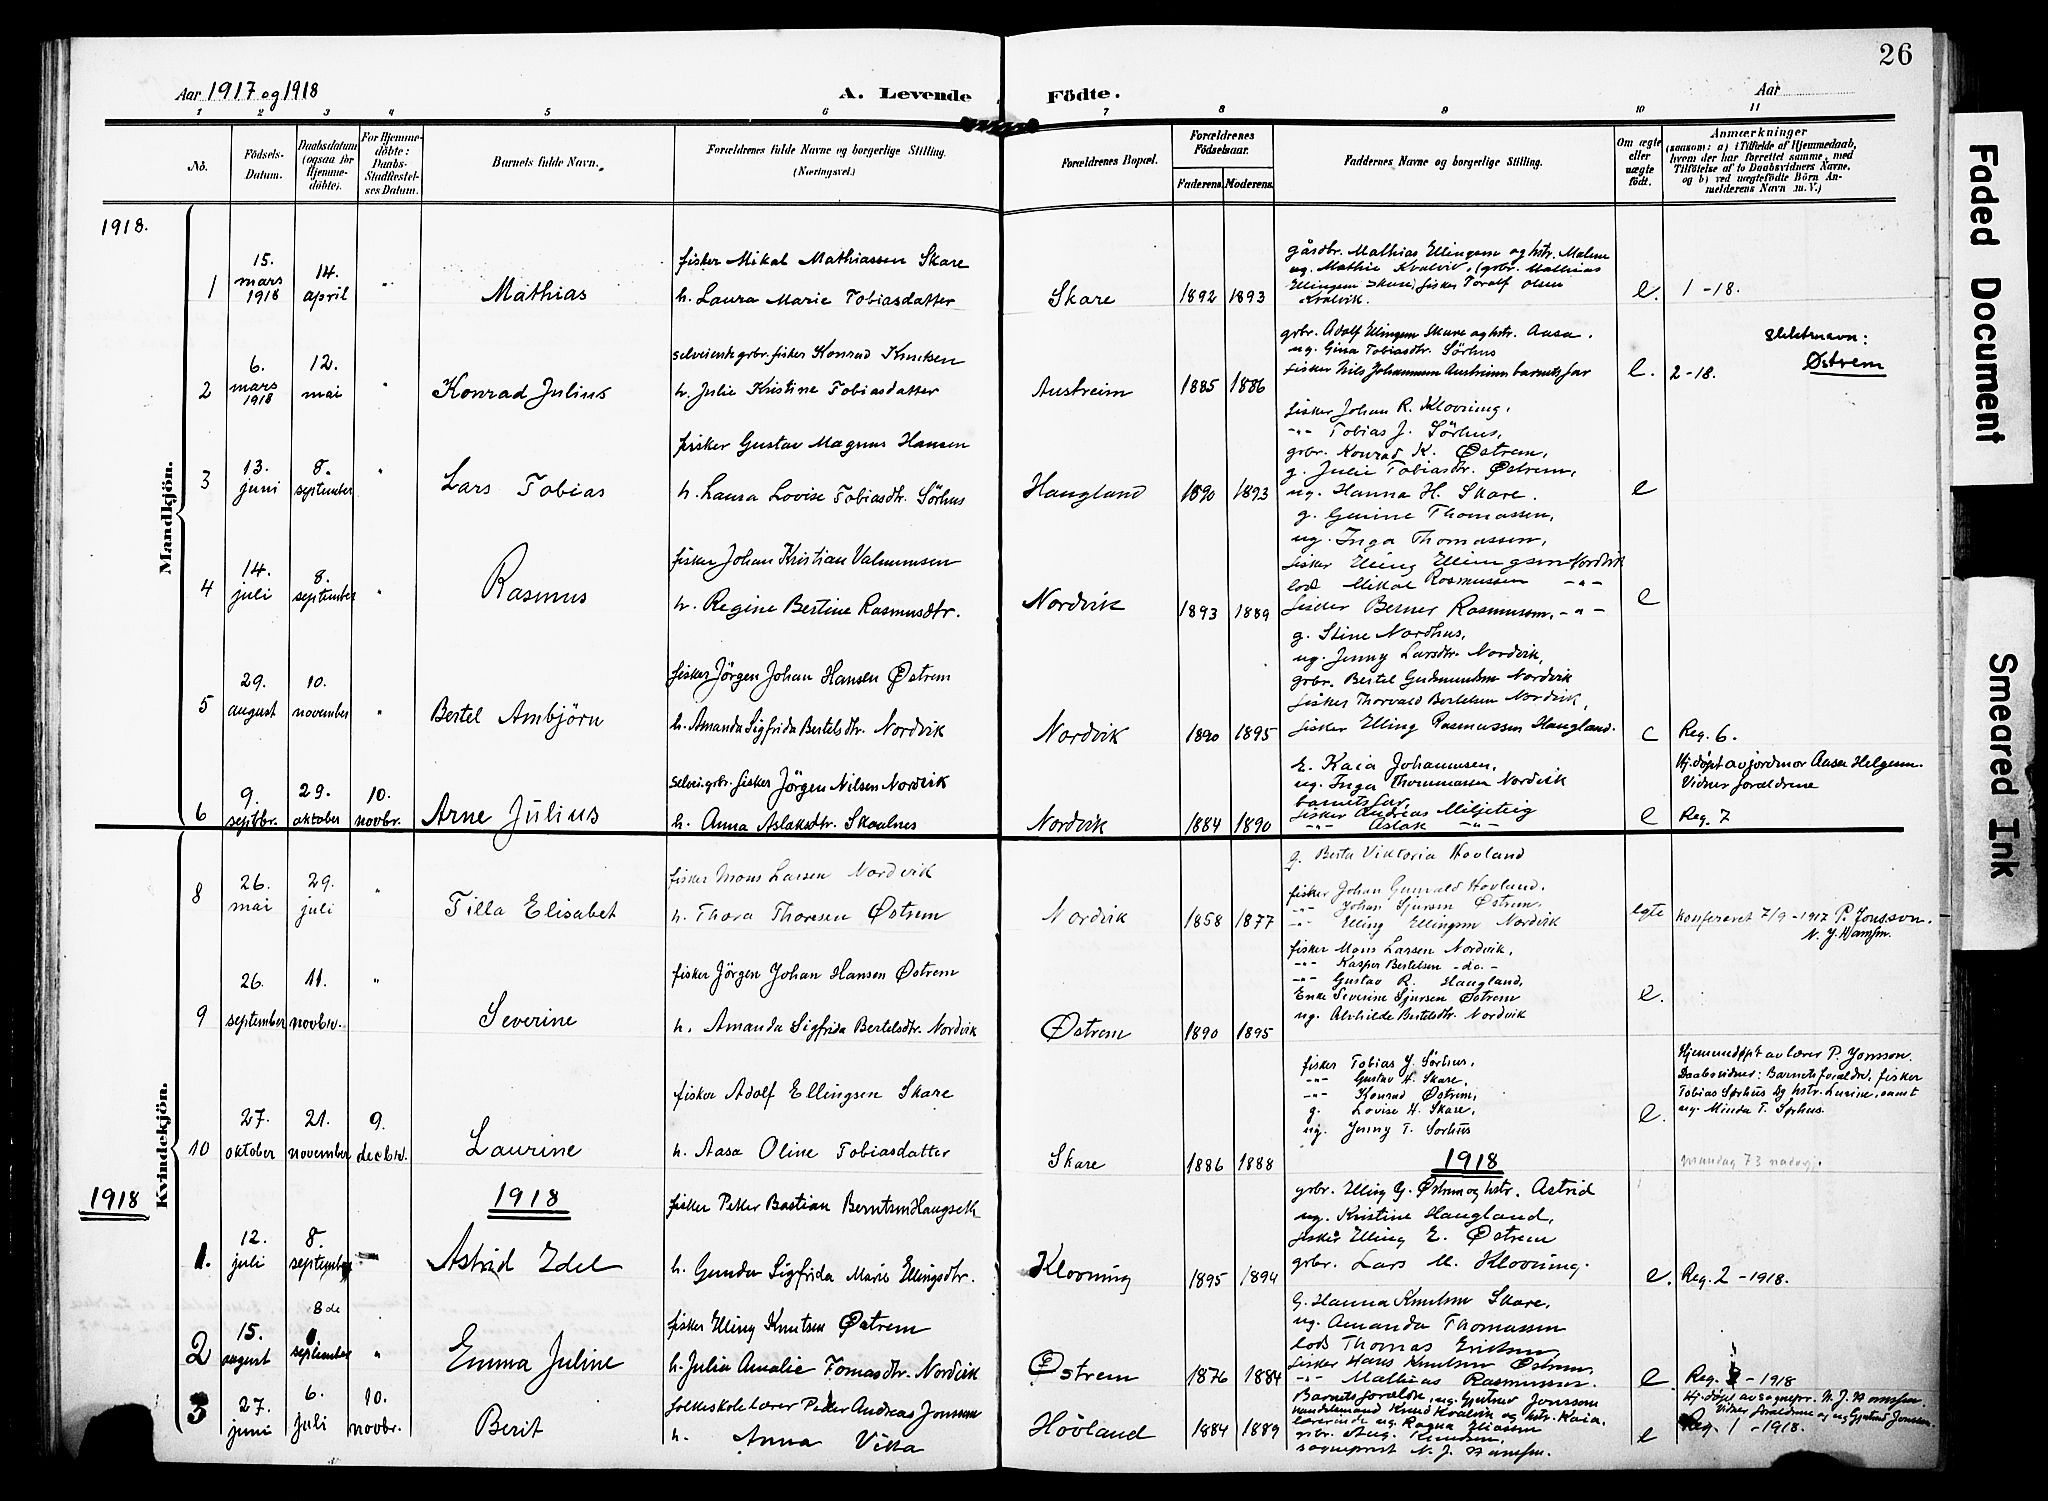 26
Aar 1917 og 1918
A. Levende Födte.
Aar
1 2 3 4 5 6 7 8 9 10 11
No.
Födsels-Datum.
Daabsdatum (ogsaa for Hjemmedöbte).
For Hjemmedöbte: Daabs-Stadfæstelses Datum.
Barnets fulde Navn.
Forældrenes fulde Navne og borgerlige Stilling.
(Næringsvei.)
Forældrenes Bopæl.
Forældrenes Födselsaar.
Faderens. Moderens.
Faddernes Navne og borgerlige Stilling.
Om ægte eller uægte födt.
Anmærkninger
(saasom: a) i Tilfælde af Hjemmedaab, hvem der har forrettet samme, med Tilföielse af to Daabsvidners Navne, og b) ved uægtefödte Börn Anmelderens Navn m. V.)
1918.
Mandkjön.
1 15. mars 1918 14. april " Mathias
fisker Mikal Mathiassen Skare
h. Laura Marie Tobiasdatter
Skare 1892 1893
gårdbr. Mathias Ellingsen og hstr. Malene
ug. Mathie Kvalvik, (grbr. Mathias
Ellingsen Skare) fisker Toralf Olsen
Kvalvik.
e. 1-18.
2 6. mars 1918 12. mai " Konrad Julius
selveiende grbr. fisker Konrad Knutsen
h. Julie Kristine Tobiasdatter
Austreim 1885 1886
grbr. Adolf Ellingsen Skare og hstr. Aasa.
ug. Gina Tobiasdtr. Sörhus
fisker Nils Johannesen Austreim barnets far
e. 2-18.
Slektsnavn:
Østrem
3 13. juni 8. september " Lars Tobias
fisker Gustav Magnus Hansen
h. Laura Lovise Tobiasdtr. Sörhus
Haugland 1890 1893
fisker Johan R. Klovning,
-"- Tobias J. Sörhus,
grbr. Konrad K. Østrem,
g. Julie Tobiasdtr. Østrem,
ug. Hanna H. Skare.
e
4 14. juli 8. september " Rasmus
fisker Johan Kristian Valmumsen
h. Regine Bertine Rasmusdtr.
Nordvik 1893 1889
g. Gurine Thomassen,
ug. Inga Thomassen,
fisker Elling Ellingsen Nordvik
lod Mikal Rasmussen -"-
fisker Berner Rasmussen, -"-
e
5 29. august 10. november " Bertel Ambjörn
fisker Jörgen Johan Hansen Østrem
h. Amanda Sigfrida Bertelsdtr. Nordvik
Nordvik 1890 1895
g. Stine Nordhus,
ug. Jenny Larsdtr. Nordvik,
grbr. Bertel Gudmundsen Nordvik
fisker Thorvald Bertelsen Nordvik,
fisker Elling Rasmussen Haugland.
e Reg. 6.
6 9. septbr. 29. oktober 10. novbr. Arne Julius
selvei. grbr. fisker Jörgen Nilsen Nordvik
h. Anna Aslaksdtr. Skaalnes
Nordvik 1884 1890
E. Kaia Johannesen,
ug. Inga Thommasen Nordvik
barnets far,
fisker Andreas Miljeteig
-"- Aslak -"-
e
Hj. döpt av jordmor Aasa Helgesen
Vidner forældrene
Reg. 7
Kvindekjön.
8 26. mai 29. juli " Tilla Elisabet
fisker Mons Larsen Nordvik
h. Thora Thoresen Østrem
Nordvik 1858 1877
g. Berta Viktoria Hovland
fisker Johan Gunvald Hovland.
-"- Johan Sjursen Østrem.
-"- Elling Ellingsen Nordvik
egte konfereret 7/9-1917 P. Jonsson.
N. J. Hansen.
9 26. september 11. novbr. " Severine
fisker Jörgen Johan Hansen Østrem
h. Amanda Sigfrida Bertelsdtr. Nordvik
Østrem 1890 1895
fisker Mons Larsen Nordvik,
-"- Kasper Bertelsen -do.-
-"- Gustav R. Haugland,
Enke Severine Sjursen Østrem
ug. Alvhilde Bertelsdtr. Nordvik
e.
10 27. oktober 21. november 9. decbr. Laurine
fisker Adolf Ellingsen Skare
h. Aasa Oline Tobiasdatter
Skare 1886 1888
fisker Tobias J. Sörhus,
-"- Gustav H. Skare,
-"- Konrad Østrem,
g. Lovise H. Skare,
ug. Jenny T. Sorhus
e.
Hjemmedøpt av lærer P. Jonsson.
Daabsvidner: Barnets forældre, fisker
Tobias Sørhus og hstr. Lusine, samt
ug. Minda T. Sørhus.
1918 1918 1918
1. 12. juli 8. september - Astrid Edel
fisker Petter Bastian Berntsen Haugseth
h. Gunda Sigfrida Marie Ellingsdtr.
Klovning 1895 1894
grbr. Elling G. Østrem og hstr. Astrid
ug. Kristine Haugland,
fisker Elling E. Østrem
grbr. Lars M. Klovning.
e. Reg. 2-1918.
2 15. august 8de september " Emma Juline
fisker Elling Knutsen Østrem
h. Julia Amalie Tomasdtr. Nordvik
Østrem 1876 1884
G. Hanna Knutsen Skare,
ug. Amanda Thomassen
lods Thomas Eriksen,
fisker Hans Knutsen Østrem,
-"- Mathias Rasmussen.
e Reg. - 1918
3 27. juni 6. juli 10. novbr. Berit
folkeskolelærer Peder Andreas Jonsson
h. Anna Vikka
Hovland 1884 1889
Barnets forældre, ug. Gjertrud Jonsson
handelsmand Knud Kvalvik og hstr. Kaia.
lærerinde ug. Ragna Eliassen
grbr. Aug. Knudsen,
sogneprest N. J. Hansen.
e
Hj. døpt av sognepr. N. J. Hansen
Vidner forældrene og ug Gjertrud Jonsson.
Reg 1-1918.
Faded Document
Smeared Ink